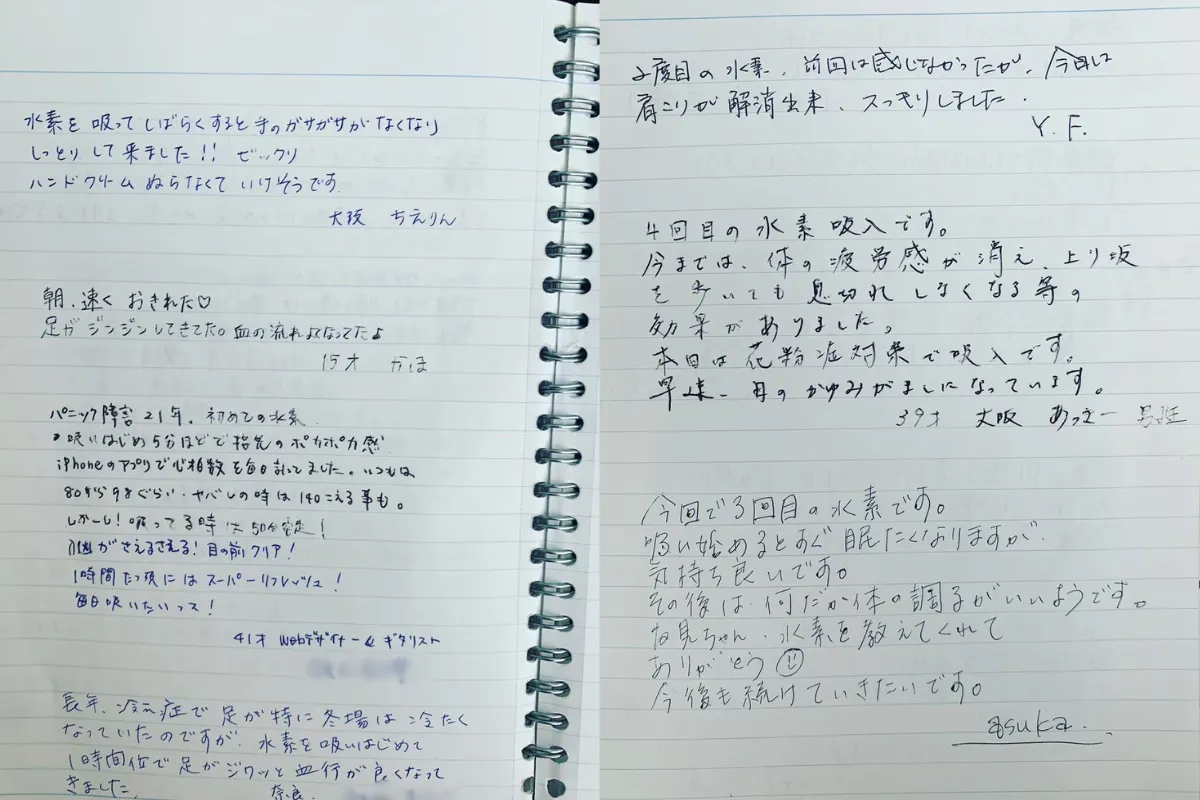 水素を吸ってしばらくすると手のガサガサがなくなり
しっとりして来ました!! ビックリ
ハンドクリームぬらなくていけそうです
大阪 ちえりん
朝、速くおきれた♡
足がジンジンしてきてた。血の流れよくなってた♪
15才 かほ
パニック障害21年。初めての水素
吸いはじめ5分ほどで指先のポカポカ感
iPhoneのアプリで心拍数を毎日計ってました。いつもは
80から98ぐらい・ヤバしの時は140こえる事も。
しかーし!吸ってる時は50台安定!
がさえるさえる!目の前クリア!
1時間たつ頃にはスーパーリフレッシュ!
毎日吸いたいっス!
41才 Webデザイナー & ギタリスト
長年、冷え症で足が特に冬場は冷たく
なっていたのですが、水素を吸いはじめて
1時間位で足がジワッと血行が良くなって
きました。 奈良.
2度目の水素、前回は感じなかったが、今日は
肩こりが解消出来、スッキリしました.
Y. F.
4回目の水素吸入です。
今までは、体の疲労感が消え、上り坂
を歩いても息切れしなくなる等の
効果がありました。
本日は花粉症対策で吸入です。
早速、目のかゆみがましになっています。
39才 大阪 あっさー 男性
今回で3回目の水素です。
吸い始めるとすぐ眠たくなりますが、
気持ち良いです。
その後は、何だか体の調子がいいようです。
お兄ちゃん、水素を教えてくれて
ありがとう☺
今後も続けていきたいです。
asuka.